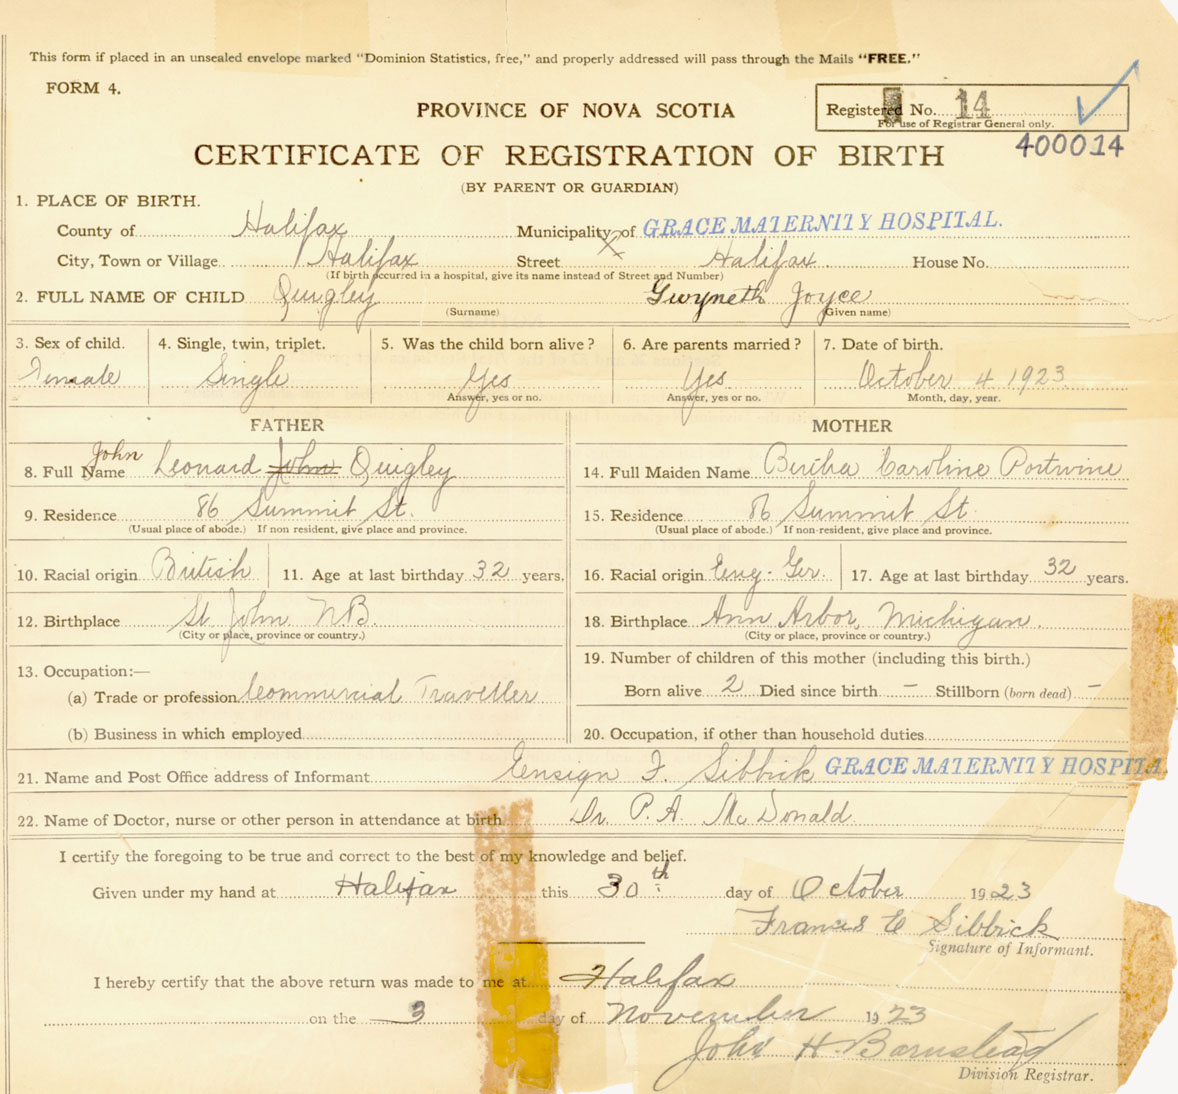 This form if placed in an unsealed envelope marked "Dominion Statistics, free," and properly addressed will pass through the Mails "FREE."
FORM 4.
PROVINCE OF NOVA SCOTIA
Registered No. 14
For use of Registrar General only.
400014
CERTIFICATE OF REGISTRATION OF BIRTH
(BY PARENT OR GUARDIAN)
1. PLACE OF BIRTH.
County of Halifax Municipality of GRACE MATERNITY HOSPITAL.
City, Town or Village Halifax Street Halifax House No.
(If birth occurred in a hospital, give its name instead of Street and Number)
2. FULL NAME OF CHILD Quigley Gwyneth Joyce
(Surname) (Given name)
3. Sex of child. 4. Single, twin, triplet. 5. Was the child born alive? 6. Are parents married? 7. Date of birth.
Female Single Yes Yes October 4 1923
Answer, yes or no. Answer, yes or no. Month, day, year.
FATHER MOTHER
8. Full Name John Leonard John Quigley 14. Full Maiden Name Bertha Caroline Portwine
9. Residence 86 Summit St. 15. Residence 86 Summit St.
(Usual place of abode.) If non resident, give place and province. (Usual place of abode.) If non-resident, give place and province.
10. Racial origin British 11. Age at last birthday 32 years. 16. Racial origin Eng-Ger. 17. Age at last birthday 32 years.
12. Birthplace St John N.B. 18. Birthplace Ann Arbor, Michigan.
(City or place, province or country.) (City or place, province or country.)
13. Occupation:— 19. Number of children of this mother (including this birth.)
(a) Trade or profession Commercial Traveller Born alive 2 Died since birth – Stillborn (born dead) –
(b) Business in which employed 20. Occupation, if other than household duties
21. Name and Post Office address of Informant Ensign F. Sibbick GRACE MATERNITY HOSPITA
22. Name of Doctor, nurse or other person in attendance at birth Dr. P.A. McDonald
I certify the foregoing to be true and correct to the best of my knowledge and belief.
Given under my hand at Halifax this 30th day of October 1923
Frances E Sibbick
Signature of Informant.
I hereby certify that the above return was made to me at Halifax
on the 3 day of November 1923
John H. Barnstead
Division Registrar.